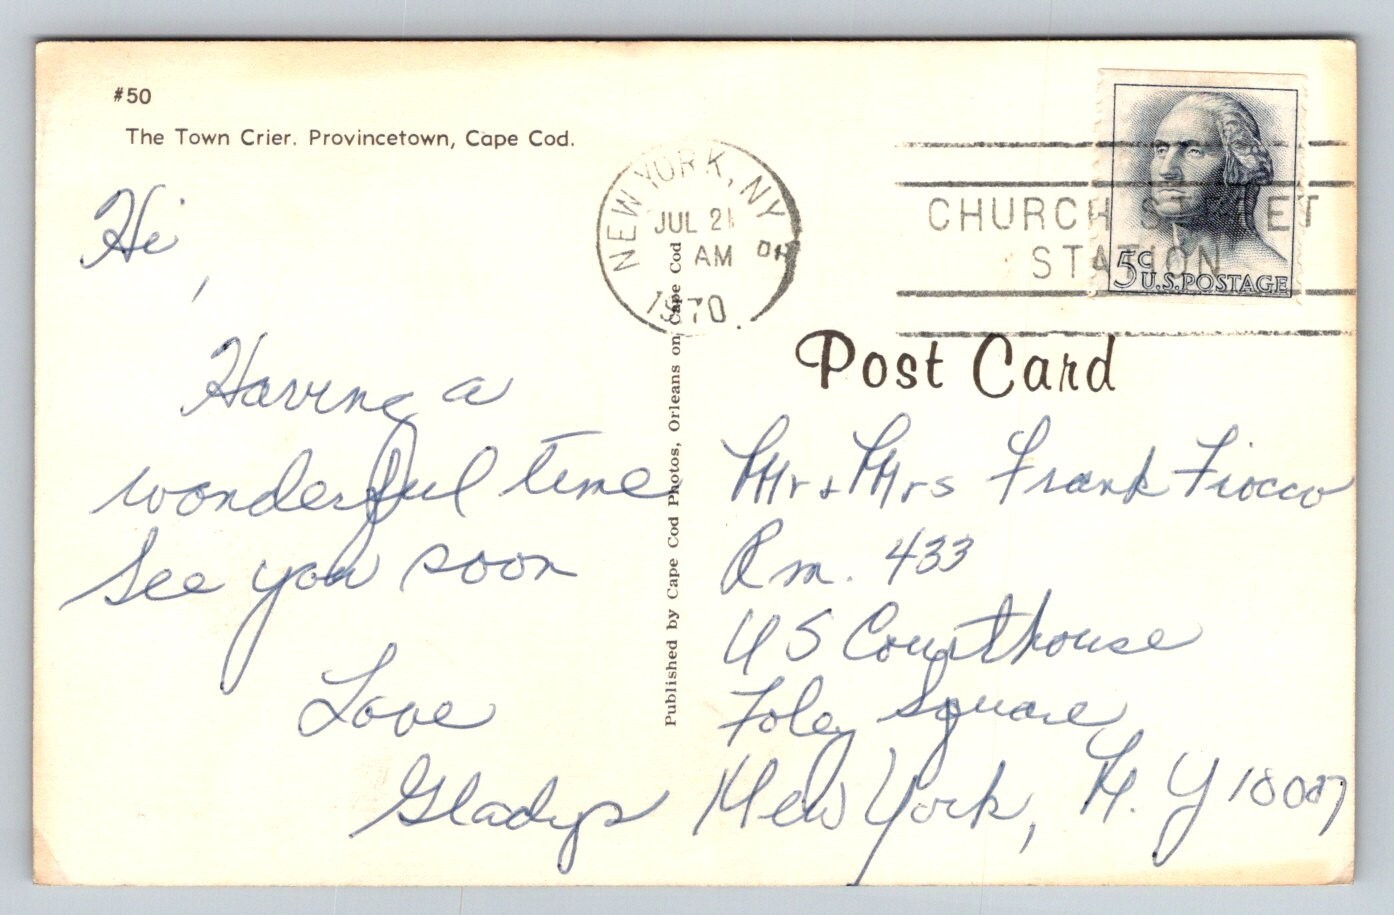 #50
The Town Crier. Provincetown, Cape Cod.
NEW YORK, NY
JUL 21
AM
1970
CHURCH STREET
STATION
5c
U.S. POSTAGE
Post Card
Published by Cape Cod Photos, Orleans on Cape Cod
Hi,
Having a
wonderful time
See you soon
Love
Gladys
Mr + Mrs Frank Fiocco
Rm. 433
US Courthouse
Foley Square
New York, N.Y 10007